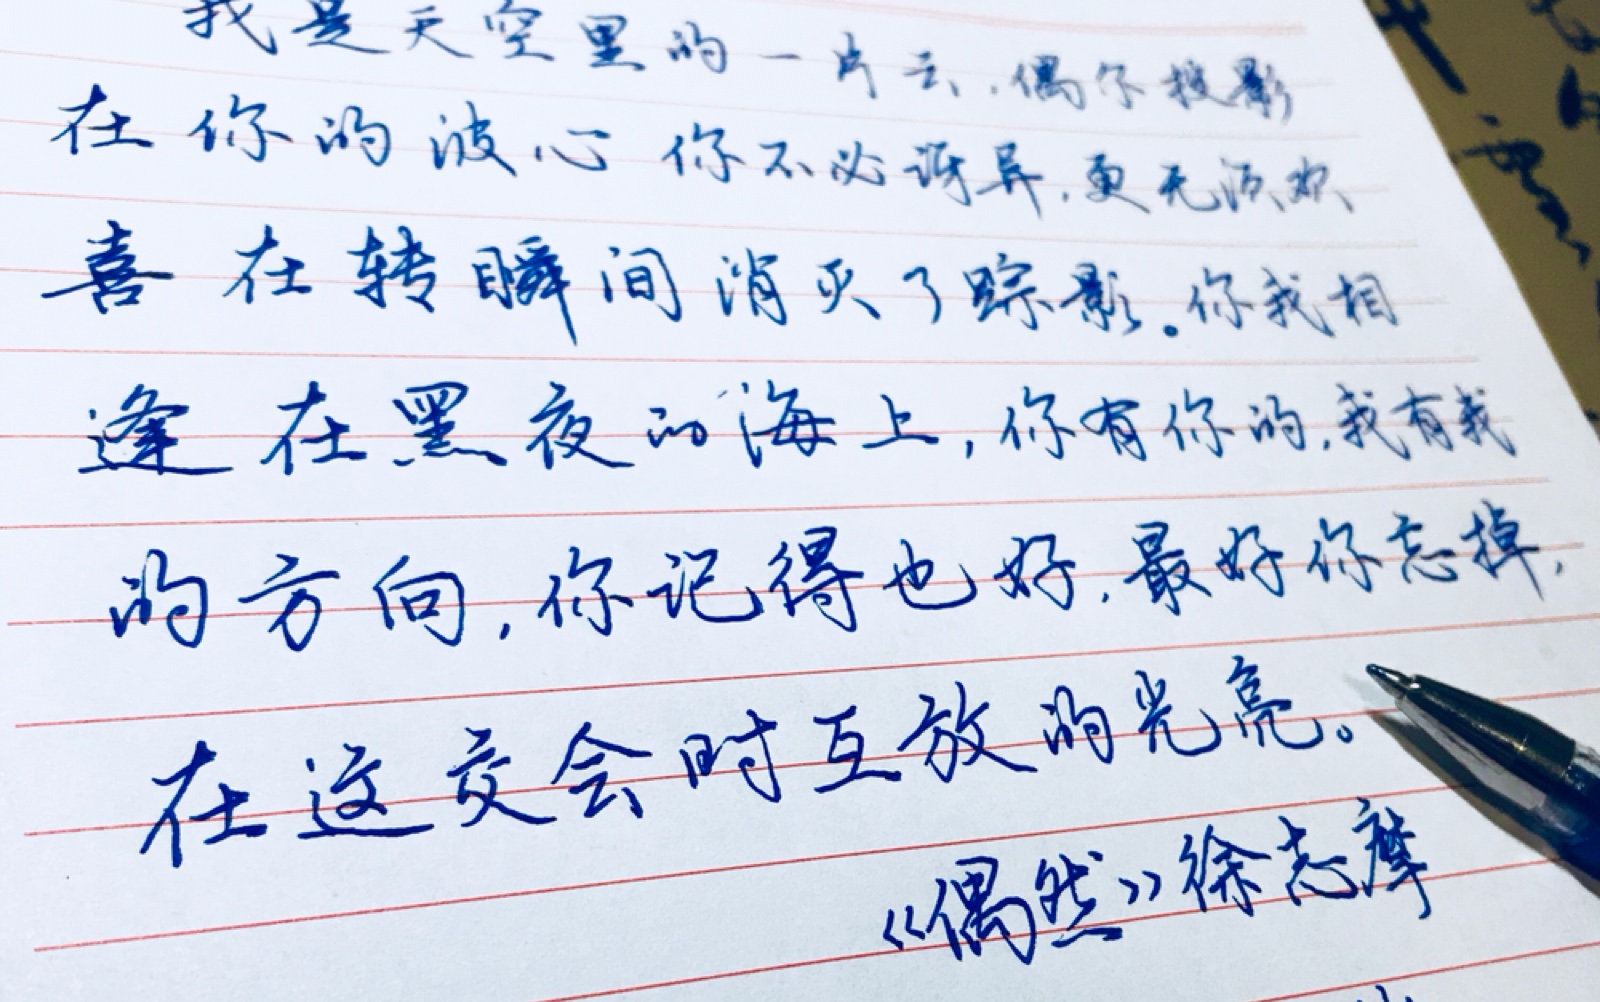 我是天空里的一片云，偶尔投影
在你的波心 你不必讶异，更无须欢
喜 在转瞬间消灭了踪影。你我相
逢在黑夜的海上，你有你的，我有我
的方向，你记得也好，最好你忘掉，
在这交会时互放的光亮。
《偶然》徐志摩